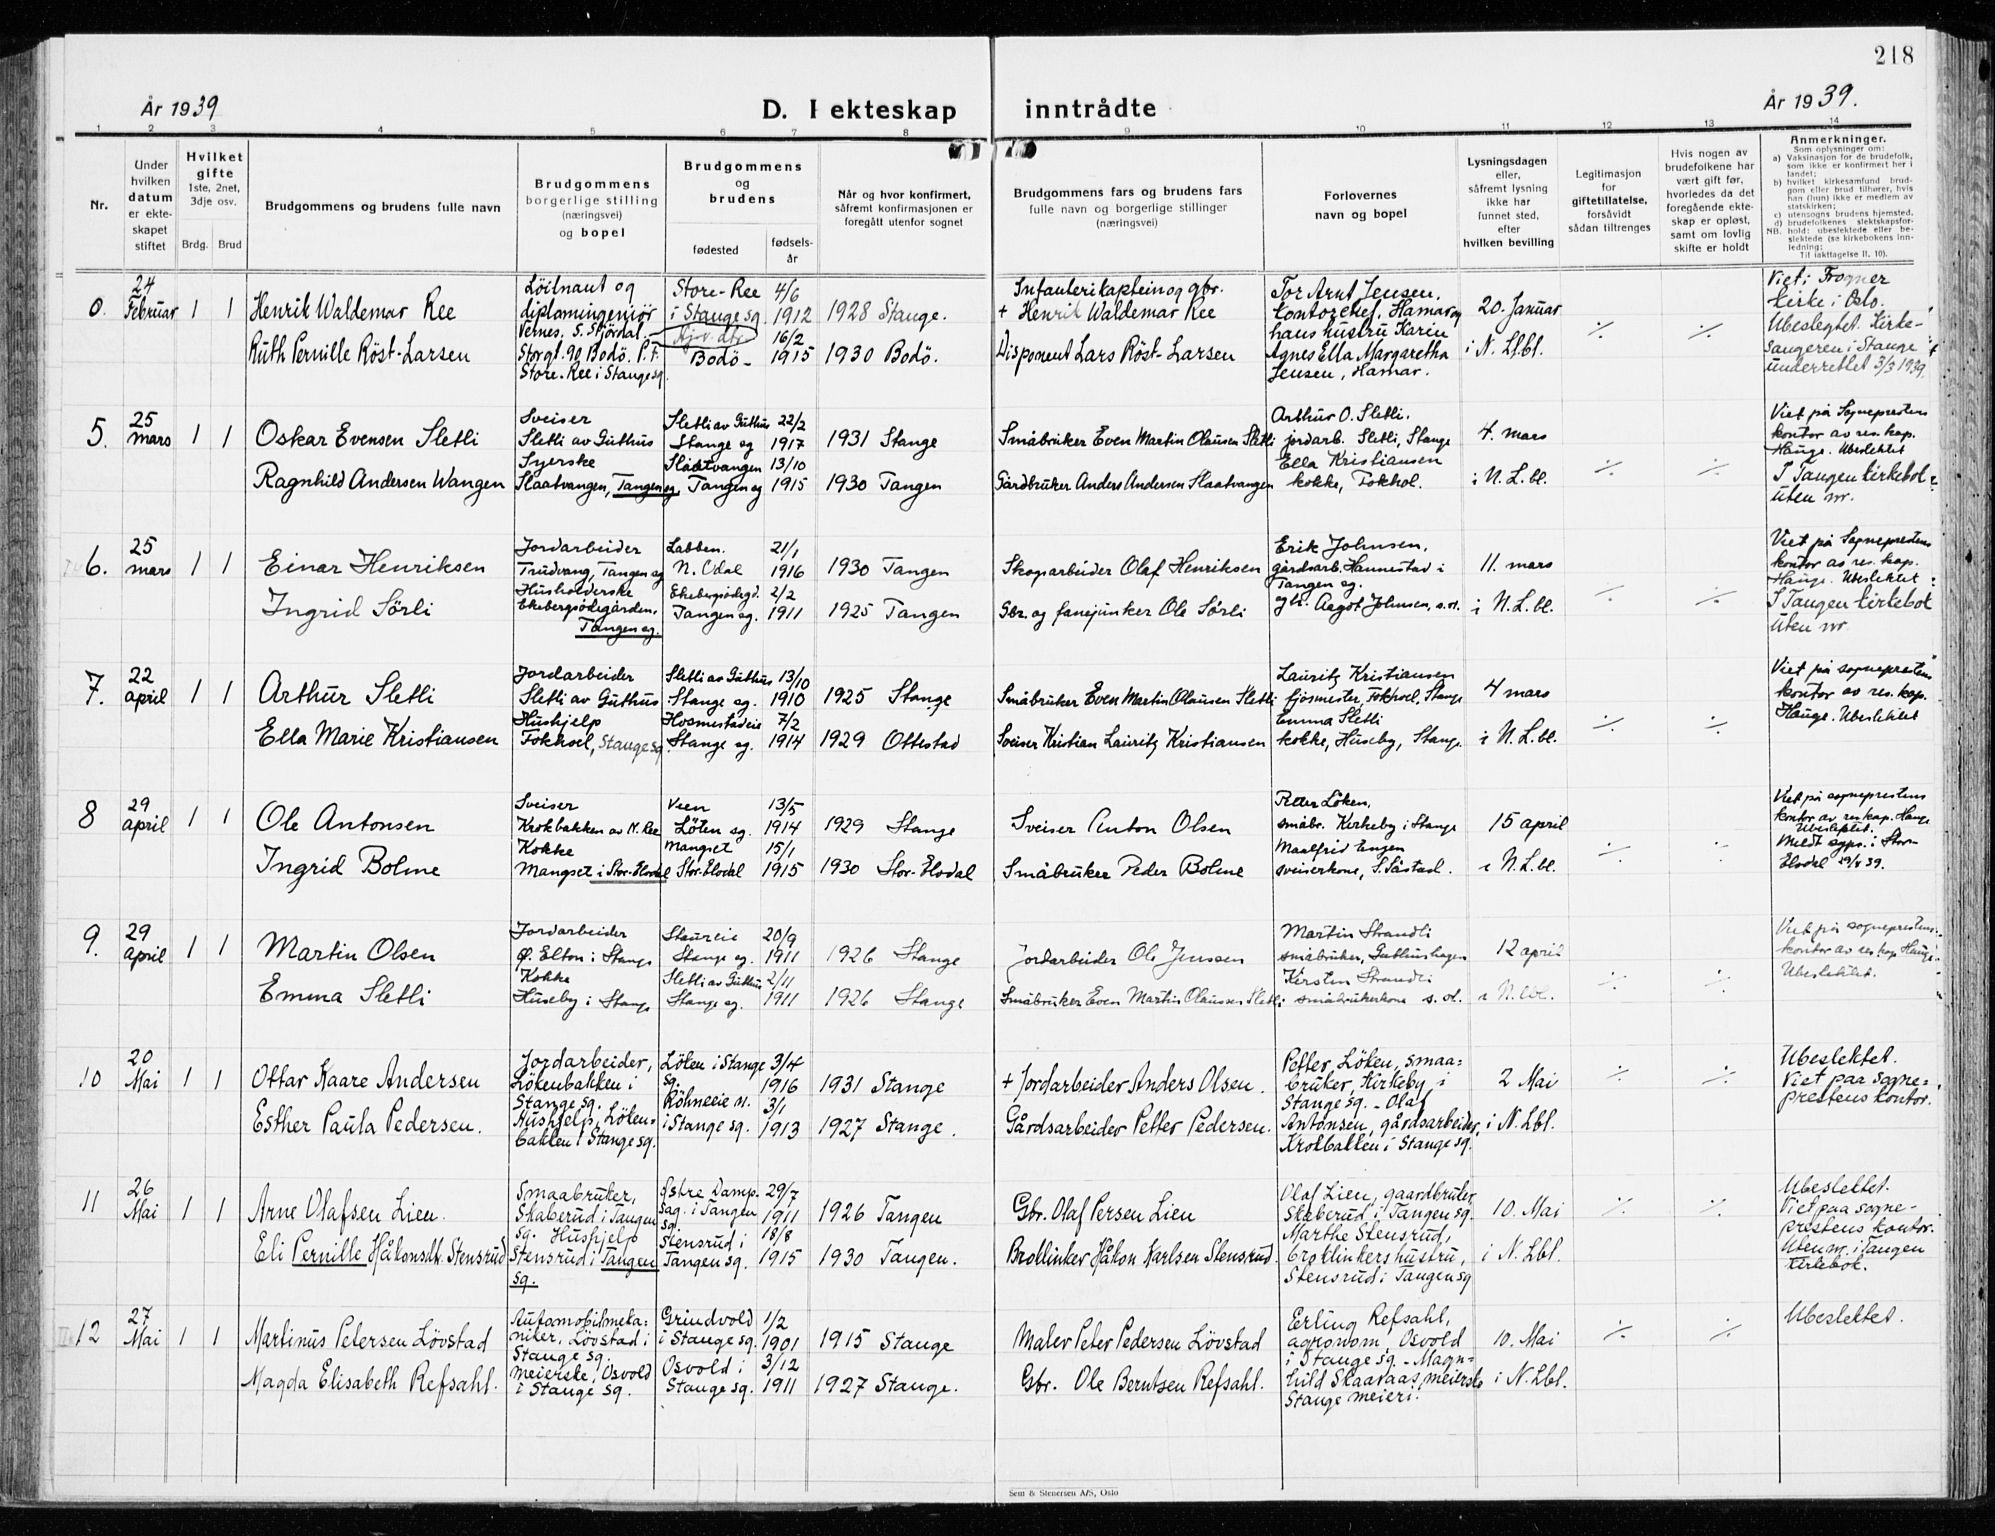 218
År 1939
D. I ekteskap inntrådte
År 1939.
1 2 3 4 5 6 7 8 9 10 11 12 13 14
Nr.
Under hvilken datum er ekteskapet stiftet
Hvilket gifte 1ste, 2net, 3dje osv.
Brdg. Brud
Brudgommens og brudens fulle navn
Brudgommens borgerlige stilling (næringsvei) og bopel
Brudgommens og brudens
fødested
fødselsår
Når og hvor konfirmert, såfremt konfirmasjonen er foregått utenfor sognet
Brudgommens fars og brudens fars fulle navn og borgerlige stillinger (næringsvei)
Forlovernes navn og bopel
Lysningsdagen eller, såfremt lysning ikke har funnet sted, efter hvilken bevilling
Legitimasjon for giftetillatelse, forsåvidt sådan tiltrenges
Hvis nogen av brudefolkene har vært gift før, hvorledes da det foregående ekteskap er opløst, samt om lovlig skifte er holdt
Anmerkninger.
Som oplysninger om:
a) Vaksinasjon for de brudefolk, som ikke er konfirmert her i landet;
b) hvilket kirkesamfund brudgom eller brud tilhører, hvis han (hun) ikke er medlem av statskirken;
c) utensogns brudens hjemsted.
d) brudefolkenes slektskapsforhold: ubeslektede eller beslektede (se kirkebokens innledning;
NB.
Til iakttagelse II. 10).
0. 24 Februar 1 1
Henrik Waldemar Ree
Löitnant og diplomingeniör Vernes. S. Stjördal.
Store-Ree i Stange sg. 4/6 1912
1928 Stange.
Infanterikaptein og gbr. + Henrik Waldemar Ree
Ruth Pernille Röst-Larsen
Storgt. 90 Bodö. P.t. Store-Ree i Stange sg.
Bodö- 16/2 1915
1930 Bodö.
Disponent Lars Röst-Larsen
Tor Arnt Jensen, kontorchef, Hamar og hans hustru Karin Agnes Ella Margaretha Jensen, Hamar.
20. Januar i N. Lbl.
Viet i Frogner Kirke i Oslo. Ubeslegtet. Kirkesangeren i Stange underrettet 3/3 1939.
5. 25 mars 1 1
Oskar Evensen Sletli
Sveiser Sletli av Guthus
Sletli av Guthus Stange sg 22/2 1917
1931 Stange
Småbruker Even Martin Olausen Sletli
Ragnhild Andersen Wangen
Syerske Slaatvangen, Tangen sg
Slaatvangen Tangen sg 13/10 1915
1930 Tangen
Gårdbruker Anders Andersen Slaatvangen
Arthur O. Sletli. jordarb. Sletli, Stange
Ella Kristiansen kokke, Fokhol.
4. mars i N. L. bl.
Viet på Sogneprestens kontor av res. kap. Hauge. Ubeslektet
I Tangen kirkebok uten nr.
6. 25 mars 1 1
Einar Henriksen
Jordarbeider Trudvang, Tangen sg
Labben. N. Odal 21/1 1916
1930 Tangen
Skogsarbeider Olaf Henriksen
Ingrid Sörli
Husholderske Ekebergödegården, Tangen sg.
Ekebergödegd. Tangen sg. 2/2 1911
1925 Tangen
Gbr. og fanejunker Ole Sörli
Erik Johnsen, gårdsarb. Hannestad i Tangen sg.
Aagot Johnsen, s.st.
11. mars i N. L. bl.
Viet på Sogneprestens kontor av res. kap. Hauge. Ubeslektet
I Tangen kirkebok uten nr
7. 22 april 1 1
Arthur Sletli
Jordarbeider Sletli av Guthus
Sletli av Guthus Stange sg. 13/10 1910
1925 Stange
Småbruker Even Martin Olausen Sletli
Ella Marie Kristiansen
Hushjelp Fokhol, Stange sg.
Hosmestadeie Stange sg. 7/2 1914
1929 Ottestad
Sveiser Kristian Lauritz Kristiansen
Lauritz Kristiansen fjösmester, Fokhol, Stange
Emma Sletli kokke, Huseby, Stange
4 mars i N. L. bl.
Viet på sogneprestens kontor av res. kap. Hauge. Ubeslektet
8 29 april 1 1
Ole Antonsen
Sveiser Krokbakken av N. Ree
Veen Löten sg. 13/5 1914
1929 Stange
Sveiser Anton Olsen
Ingrid Bolme
Kokke Mangset i Stor-Elvdal
Mangset Stor-Elvdal 15/1 1915
1930 Stor-Elvdal
Småbruker Peder Bolme
Petter Löken, småbr. Kirkeby i Stange
Maalfrid Engen sveiserkone, S. Såstad.
15 april i N. L. bl.
Viet på sogneprestens kontor av res. kap. Hauge Ubeslektet.
Meldt sgpr. i Stor-Elvdal 29/4 39.
9. 29 april 1 1
Martin Olsen
Jordarbeider Ø. Elton i Stange
Staureie Stange sg. 20/9 1911
1926 Stange
Jordarbeider Ole Jensen
Emma Sletli
Kokke Huseby i Stange
Sletli av Guthus Stange sg. 2/11 1911
1926 Stange
Småbruker Even Martin Olaussen Sletli
Martin Strandli småbruker, Guthushagen
Kirsten Strandli småbrukerkone s. st.
12 april i N. lbl.
Viet på sogneprestens kontor av res kap. Hauge
Ubeslektet.
10 20 Mai 1 1
Ottar Kaare Andersen
Jordarbeider, Lökenbakken i Stange sg.
Löken i Stange sg. 3/4 1916
1931 Stange
+ Jordarbeider Anders Olsen.
Esther Paula Pedersen.
Hushjelp, Lökenbakken i Stange sg.
Röhneeie n. i Stange sg. 3/1 1913
1927 Stange.
Gårdsarbeider Petter Pedersen.
Petter Löken, smaabruker, Kirkeby i Stange sg. - Olaf Antonsen, gårdsarbeider, Krokbakken i Stange sg.
2 Mai i N. Lbl.
Ubeslektet. Viet paa sogneprestens kontor.
11 26 Mai 1 1
Arne Olafsen Lien.
Smaabruker, Skaberud i Tangen sg.
Østre Dampsag. i Tangen sg. 29/7 1911
1926 Tangen
Gbr. Olaf Persen Lien
Eli Pernille Håkonsdt. Stensrud
Hushjelp Stensrud i Tangen sg.
Stensrud i Tangen sg. 18/8 1915
1930 Tangen.
Broklinker Håkon Karlsen Stensrud.
Olaf Lien, gaardbruker, Skaberud i Tangen sg.
Marthe Stensrud, broklinkers hustru, Stensrud i Tangen sg
10. Mai i N. Lbl.
Ubeslektet. Viet paa sogneprestens kontor. Uten nr. i Tangen kirkebok.
12 27 Mai 1 1
Martinus Petersen Lövstad
Automobilmekaniker, Lövstad i Stange sg.
Grindvold i Stange sg. 1/2 1901
1915 Stange
Maler Peter Pedersen Lövstad
Magda Elisabeth Refsahl.
Meierske, Osvold i Stange sg.
Osvold i Stange sg. 3/12 1911
1927 Stange.
Gbr. Ole Berntsen Refsahl.
Erling Refsahl, agronom, Osvold i Stange sg. - Magnhild Skaaraas, meierske Stange meieri.
10. Mai i N. Lbl.
Ubeslektet.
Sem & Stenersen A/S, Oslo